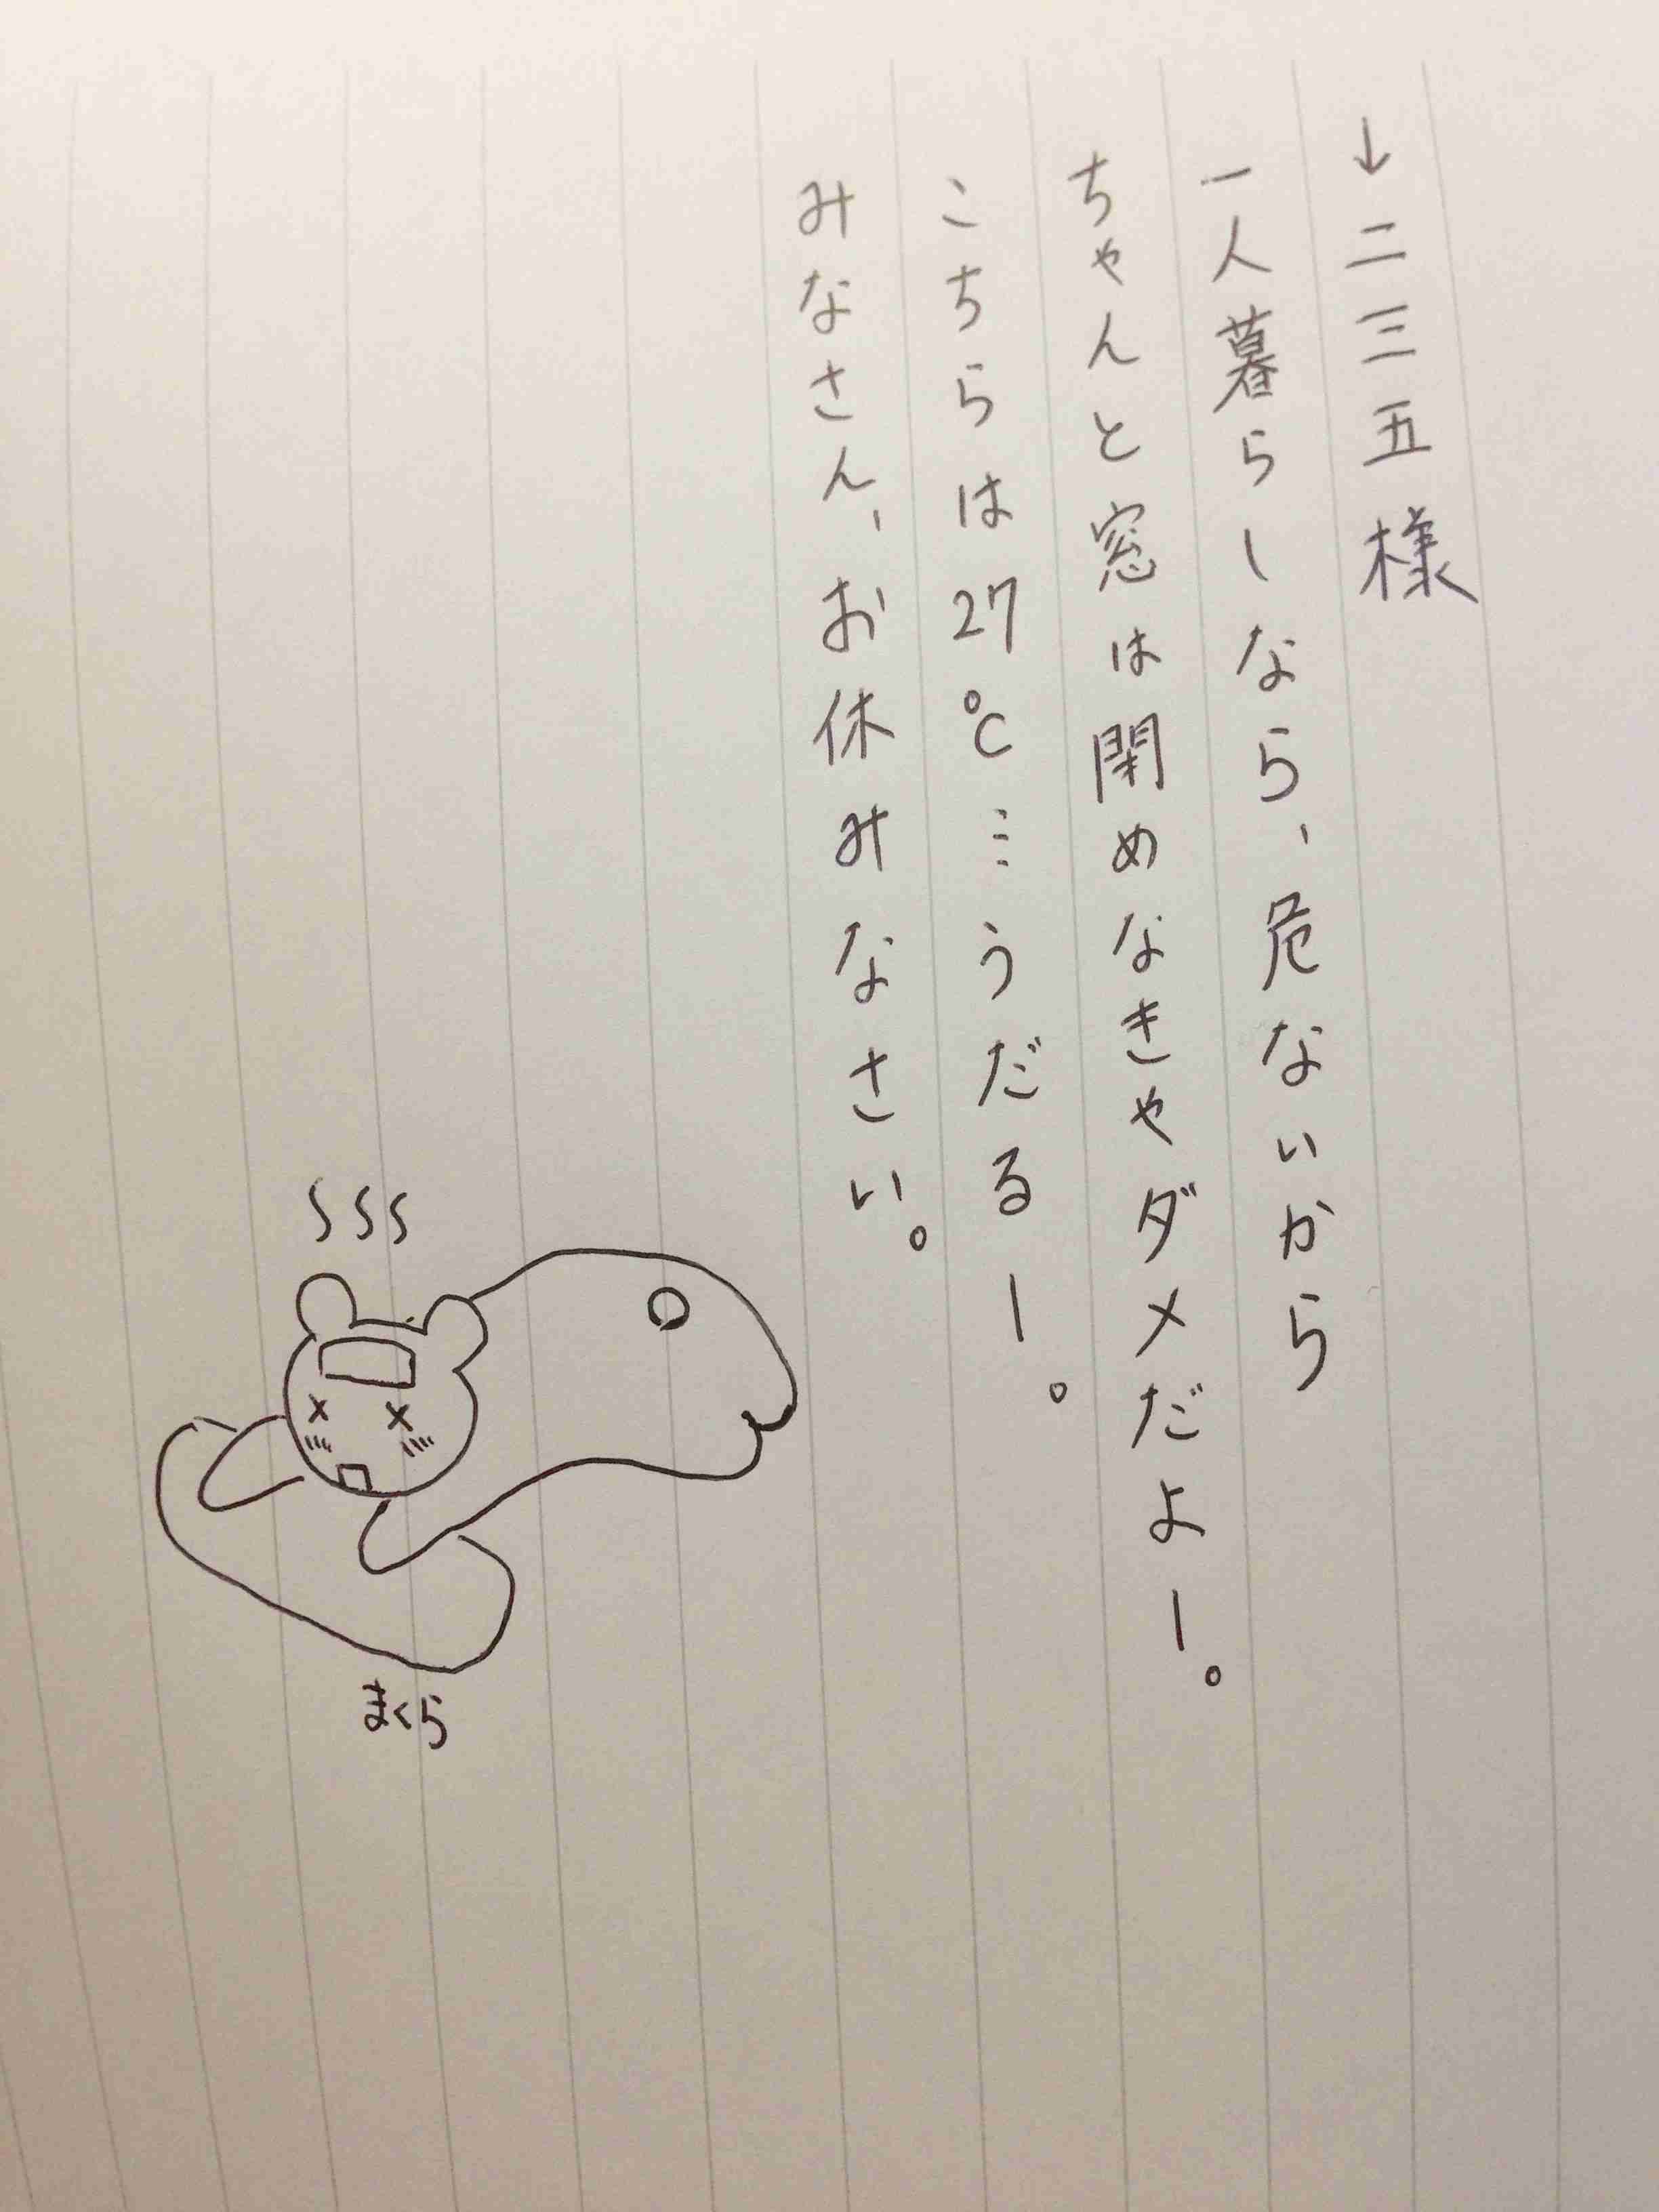 ↓二三五様
一人暮らしなら、危ないから
ちゃんと窓は閉めなきゃダメだよー。
こちらは27℃…うだるー。
みなさん、お休みなさい。
まくら